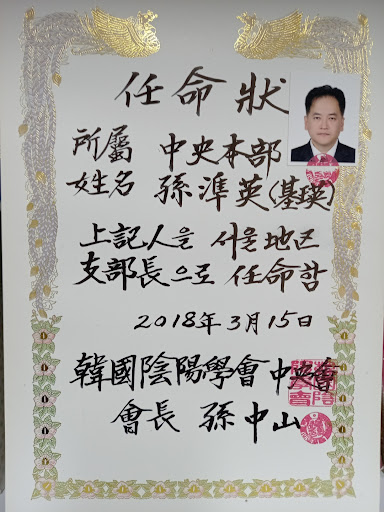 任命狀
所屬 中央本部
姓名 孫準英(基瑛)
上記人을 서울地区
支部長으로 任命함
2018年 3月 15日
韓國陰陽學會 中央會
會長 孫中山